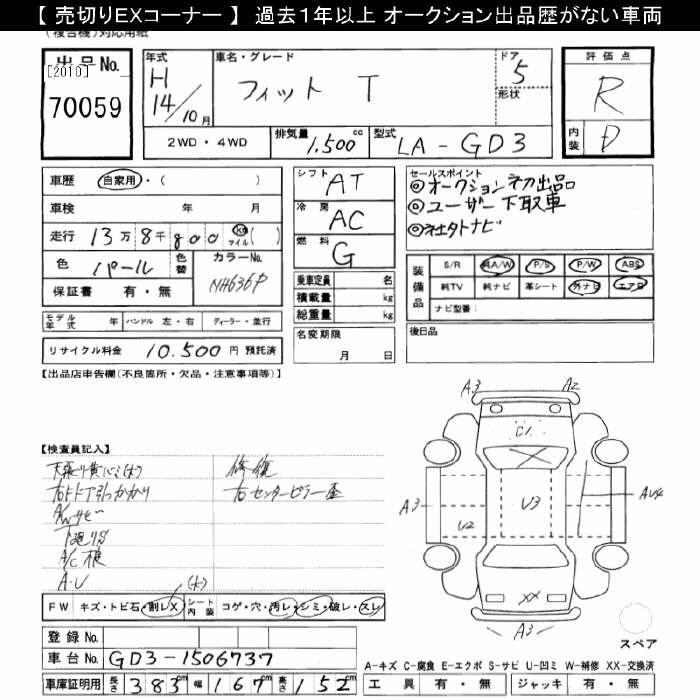 【 売切りEXコーナー 】 過去１年以上 オークション出品歴がない車両
(複合機)対応用紙
出 品 No.
[2010]
70059
年式
H
14/10 月
車名・グレード
フィット T
ドア
5
形状
評 価 点
R
内装
D
2WD ・ 4WD
排気量
1,500 cc
型式
LA-GD3
車歴 自家用・( )
車検 年 月
走行 13万 8千 800 km マイル ( )
色 パール 色替 カラーNo. NH636P
保証書 有 ・ 無
シフト AT
冷 房 AC
燃 料 G
乗車定員 名
積載量 kg
総重量 kg
名変期限
月 日
セールスポイント
◎オークション初出品
◎ユーザー下取車
◎社外ナビ
装備品
S/R 純A/W P/S P/W ABS
純TV 純ナビ 革シート 外ナビ エアB
ナビ型番:
モデル年式 年 ハンドル 左・右 ディーラー・並行
リサイクル料金 10,500 円 預託済
後日品
【出品店申告欄(不良箇所・欠品・注意事項等)】
【検査員記入】
修復
右センターピラー歪
右FドアT引っかかり
A/Wサビ
下廻りサビ
A/C
A・U
(大)
FW キズ・トビ石・割レX シート内装 コゲ・穴・汚レ・シミ・破レ・スレ
登録 No.
車台 No. GD3-1506737
車庫証明用 長さ 383 cm 幅 167 cm 高さ 152 cm
A3
A2
C1
X
A3
U2
U3
AU4
XX
A3
スペア
A-キズ C-腐食 E-エクボ S-サビ U-凹ミ W-補修 XX-交換済
工 具 有 ・ 無 ジャッキ 有 ・ 無